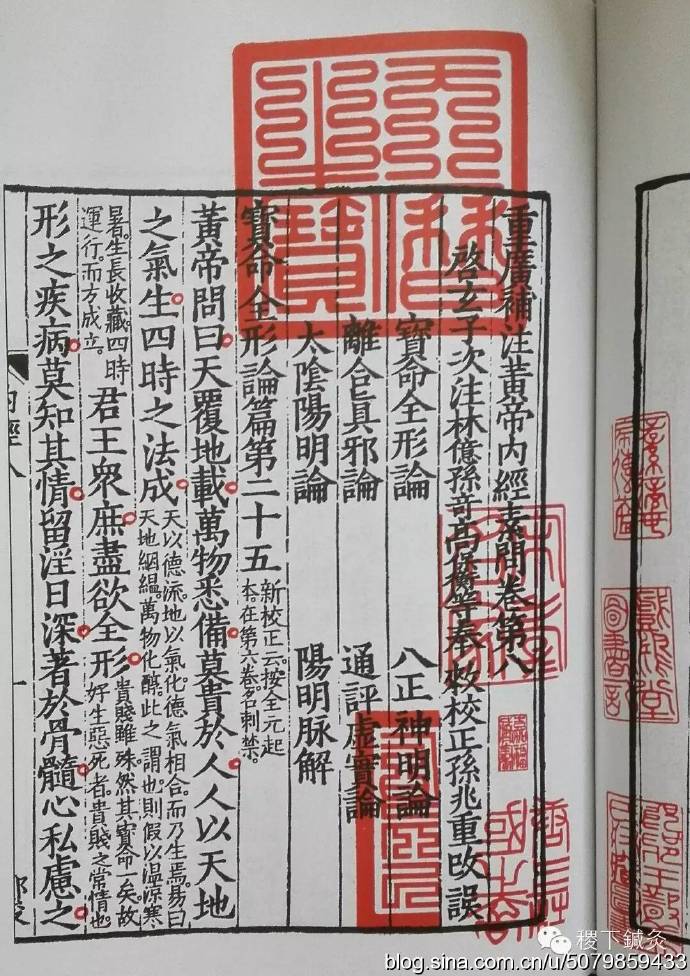 重廣補注黃帝內經素問卷第八
啓玄子次注林億孫竒高保衡等奉敕校正孫兆重改誤
寳命全形論
八正神明論
離合眞邪論
通評虛實論
太陰陽明論
陽明脉解
寳命全形論篇第二十五
新校正云。按全元起
本。在第六卷。名刺禁。
黃帝問曰。天覆地載。萬物悉備。莫貴於人。人以天地
之氣生。四時之法成。
天以德流。地以氣化。德氣相合。而乃生焉。易曰
天地絪縕。萬物化醇。此之謂也。則假以温涼寒
暑。生長收藏。四時
運行。而方成立。
君王衆庶。盡欲全形。
貴賤雖殊。然其寳命一矣。故
好生惡死者。貴賤之常情也。
形之疾病。莫知其情。留淫日深。著於骨髓。心私慮之。
內經八
一
稷下鍼灸
blog.sina.com.cn/u/5079859433